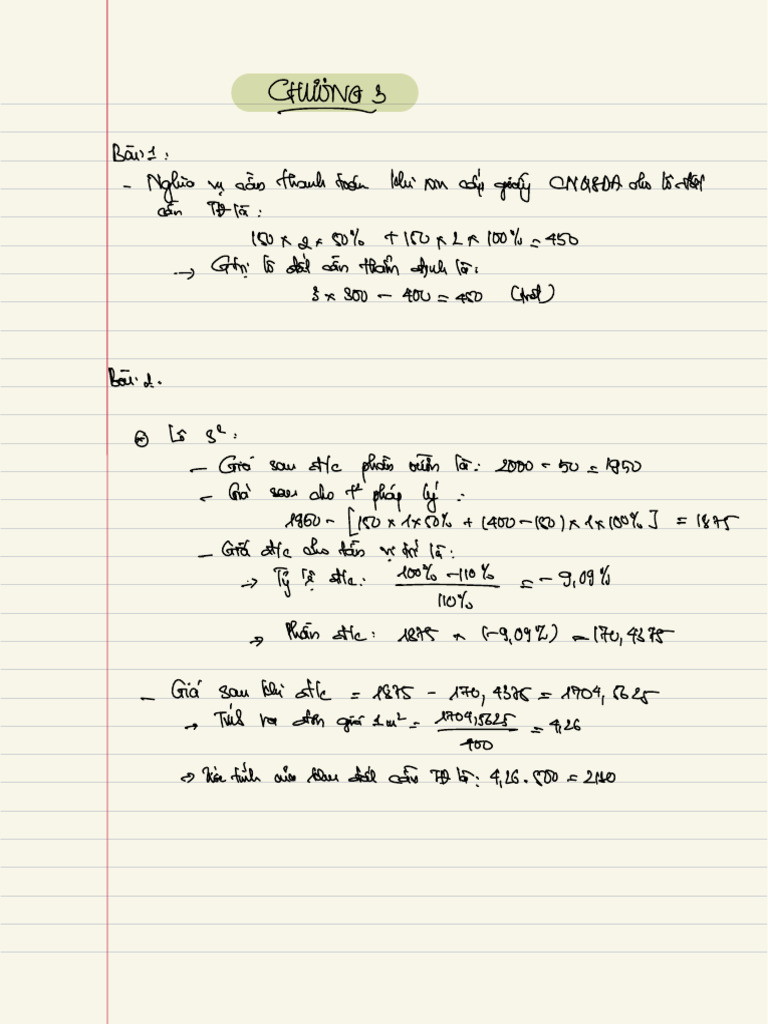 CHƯƠNG 3
Bài 1:
- Nghĩa vụ cần thanh toán khi xin cấp giấy CNQSDĐ cho lô đất
cần TĐ là:
150 x 2 x 50% + 150 x 2 x 100% = 450
→ Giá trị lô đất cần thẩm định là:
3 x 300 - 400 = 450 (trđ)
Bài 2.
Lô 3²:
- Giá sau đ/c phần diện là: 2000 - 50 = 1950
- Giá sau cho t² pháp lý:
1950 - [150 x 1 x 50% + (400 - 150) x 1 x 100%] = 1875
- Giá đ/c cho vị trí là:
→ Tỷ lệ đ/c: 100% - 110% / 110% = - 9,09%
→ Phần đ/c: 1875 x (-9,09%) = 170,4375
- Giá sau khi đ/c = 1875 - 170,4375 = 1704,5625
→ Tính ra đơn giá 1m² = 1704,5625 / 400 = 4,26
→ của khu đất cần TĐ là: 4,26 . 500 = 2130